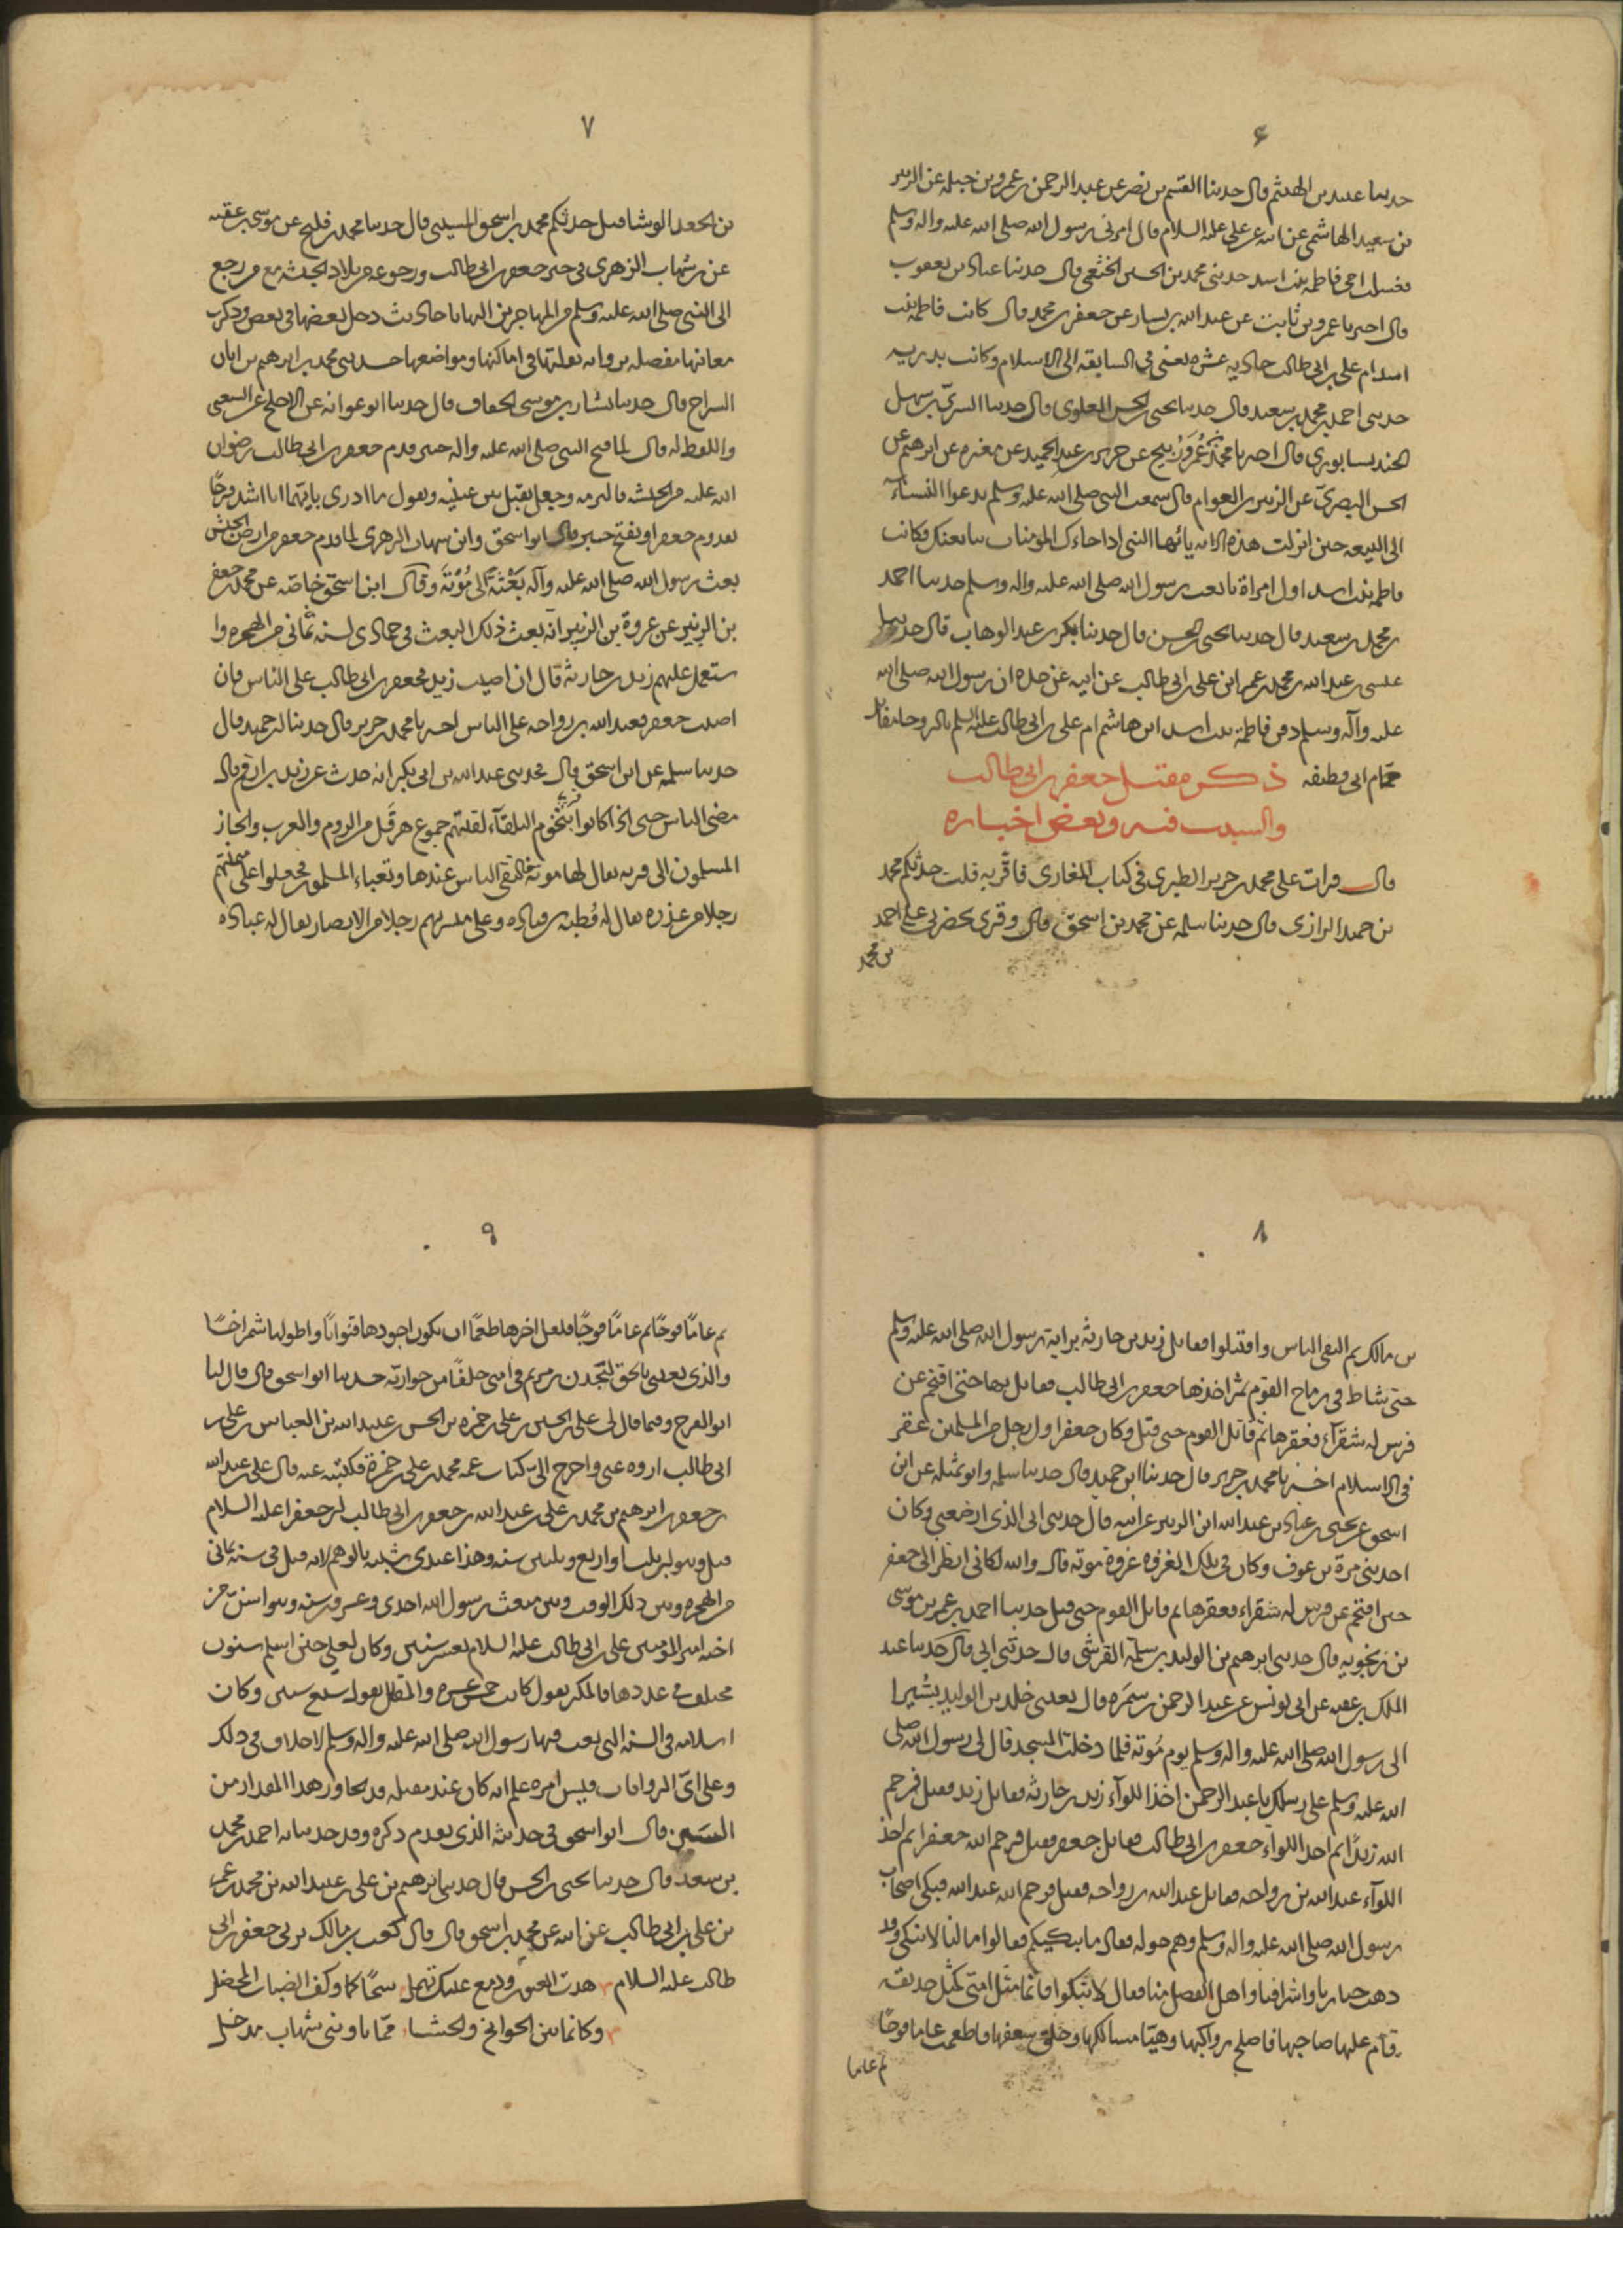 ۶
حدثنا عبيد بن الهيثم قال حدثنا القسم بن نصر عن عبد الرحمن بن عمرو بن جبله عن الزبير
بن سعيد الهاشمي عن ابيه عن علي عليه السلام قال امرني رسول الله صلى الله عليه واله وسلم
فغسلت امي فاطمه بنت اسد حدثني محمد بن الحسن الخثعمي قال حدثنا عباد بن يعقوب
قال اخبرنا عمرو بن ثابت عن عبد الله بن يسار عن جعفر بن محمد قال كانت فاطمه بنت
اسد ام علي بن ابي طالب حاديه عشره يعني في السابقه الى الاسلام وكانت بدريه
حدثني احمد بن محمد بن سعيد قال حدثنا يحيى بن الحسن العلوي قال حدثنا السري بن سهل
الجنديسابوري قال اخبرنا محمد بن عمرو زنيج عن جرير بن عبد الحميد عن مغيره عن ابرهيم عن
الحسن البصري عن الزبير بن العوام قال سمعت النبي صلى الله عليه وسلم يدعوا النساء
الى البيعه حين انزلت هذه الايه يا ايها النبي اذا جاءك المومنات يبايعنك وكانت
فاطمه بنت اسد اول امراة بايعت رسول الله صلى الله عليه واله وسلم حدثنا احمد
بن محمد بن سعيد قال حدثنا يحيى بن الحسن قال حدثنا بكر بن عبد الوهاب قال حدثنا
عيسى بن عبد الله بن محمد بن عمر ابن علي بن ابي طالب عن ابيه عن جده ان رسول الله صلى الله
عليه وآله وسلم دفن فاطمة بنت اسد ابن هاشم ام علي بن ابي طالب عليه السلم بالروحا مقابل
حمام ابي قطيفه ذكر مقتل جعفر بن ابي طالب
والسبب فيه وبعض اخباره
قال قرات على محمد بن جرير الطبري في كتاب المغازي فاقر به قلت حدثكم محمد
بن حميد الرازي قال حدثنا سلمه عن محمد بن اسحق قال وقرئ بحضرتي على احمد
بن محمد
۷
بن الجعد الوشا قيل حدثكم محمد بن اسحق المسيبي قال حدثنا محمد بن فليح عن موسى بن عقبه
عن بن شهاب الزهري في خبر جعفر بن ابي طالب ورجوعه من بلاد الحبشه مع من رجع
الى النبي صلى الله عليه وسلم من المهاجرين اليها باحاديث دخل بعضها في بعض وذكرت
معانيها مفصله برواية نقلتها في اماكنها ومواضعها حدثني محمد بن ابرهيم بن ابان
السراج قال حدثنا بشار بن موسى الخفاف قال حدثنا ابو عوانه عن الاجلح عن الشعبي
واللفظ له قال لما فتح النبي صلى الله عليه واله خيبر قدم جعفر بن ابي طالب رضوان
الله عليه من الحبشه فالتزمه وجعل يقبل بين عينيه ويقول ما ادري بايهما انا اشد فرحا
بقدوم جعفر او بفتح خيبر قال ابو اسحق وابن شهاب الزهري لما قدم جعفر من ارض الحبش
بعث رسول الله صلى الله عليه وآله بعثة الى موتة وقال ابن اسحق خاصه عن محمد بن جعفر
بن الزبير عن عروة بن الزبير انه بعث ذلك البعث في جمادى لسنه ثماني من الهجره وا
ستعمل عليهم زيد بن حارثه قال ان اصيب زيد فجعفر بن ابي طالب على الناس فان
اصيب جعفر فعبد الله بن رواحه على الناس اخبرنا محمد بن جرير قال حدثنا بن حميد قال
حدثنا سلمه عن ابن اسحق قال فحدثني عبد الله بن ابي بكر انه حدث عن زيد بن ارقم قال
مضى الناس حتى اذا كانوا بتخوم البلقآء لقيتهم جموع هرقل من الروم والعرب وانحاز
المسلمون الى قريه يقال لها موته فالتقى الناس عندها وتعباء المسلمون فجعلوا على ميمنتهم
رجلا من عذره يقال له قطبه بن قتاده وعلى ميسرتهم رجلا من الانصار يقال له عباده
۸
بن مالك ثم التقى الناس واقتتلوا فقاتل زيد بن حارثه براية رسول الله صلى الله عليه وسلم
حتى شاط في رماح القوم ثم اخذها جعفر بن ابي طالب فقاتل بها حتى اقتحم عن
فرس له شقرآء فعقرها ثم قاتل القوم حتى قتل وكان جعفر اول رجل من المسلمين عقر
في الاسلام اخبرنا محمد بن جرير قال حدثنا ابن حميد قال حدثنا سلمه وابو ثميله عن ابن
اسحق عن يحيى بن عباد بن عبد الله ابن الزبير عن ابيه قال حدثني ابي الذي ارضعني وكان
احد بني مرة بن عوف وكان في تلك الغزوه غزوة موته قال والله لكاني انظر الى جعفر
حين اقتحم عن فرس له شقراء فعقرها ثم قاتل القوم حتى قتل حدثنا احمد بن عمر بن موسى
بن زنجويه قال حدثني ابرهيم بن الوليد بن سلمة القرشي قال حدثني ابي قال حدثنا عبد
الملك بن عقبه عن ابي يونس عن عبد الرحمن بن سمره قال بعثني خلد بن الوليد بشيرا
الى رسول الله صلى الله عليه واله وسلم يوم موته فلما دخلت المسجد قال لي رسول الله صلى
الله عليه وسلم على رسلك يا عبد الرحمن اخذ اللوآء زيد بن حارثه فقاتل زيد فقتل فرحم
الله زيدا ثم اخذ اللواء جعفر بن ابي طالب فقاتل جعفر فقتل فرحم الله جعفرا ثم اخذ
اللوآء عبد الله بن رواحه فقاتل عبد الله بن رواحه فقتل فرحم الله عبد الله فبكى اصحاب
رسول الله صلى الله عليه واله وسلم وهم حوله فقال ما يبكيكم فقالوا ما لنا لا نبكي وقد
ذهب خيارنا واشرافنا واهل الفضل منا فقال لا تبكوا فانما مثل امتي كمثل حديقه
قام عليها صاحبها فاصلح رواكبها وهيا مساكنها وحلق سعفها فاطعمت عاما فوجا
ثم عاما
۹
ثم عاما فوجا ثم عاما فوجا فلعل اخرها طعما ان يكون اجودها قنوانا واطولها شمراخا
والذي بعثني بالحق لتجدن بن مريم في امتي خلفا من حواريه حدثنا ابو اسحق قال قال لنا
ابو الفرج وفيما قال لي علي بن الحسين بن علي بن حمزه بن الحسن بن عبيد الله بن العباس بن علي بن
ابي طالب اروه عني واخرج الي كتاب عمه محمد بن علي بن حمزة فكتبته عنه قال علي بن عبد الله
بن جعفر بن ابرهيم بن محمد بن علي بن عبد الله بن جعفر بن ابي طالب ان جعفرا عليه السلام
قتل وهو ابن ثلث او اربع وثلثين سنه وهذا عندي شبيه بالوهم لانه قتل في سنه ثماني
من الهجره وبين ذلك الوقت وبين مبعث رسول الله احدى وعشرون سنه وهو اسن من
اخيه امير المومنين علي بن ابي طالب عليه السلام بعشر سنين وكان لعلي حين اسلم سنون
مختلف في عددها فالمكثر يقول كانت خمس عشره والمقلل يقول سبع سنين وكان
اسلامه في السنه التي بعث فيها رسول الله صلى الله عليه واله وسلم لا خلاف في ذلك
وعلى اي الروايات قيس امره علم انه كان عند مقتله قد تجاوز هذا المقدار من
السنين قال ابو اسحق في حديثه الذي تقدم ذكره وقد حدثنا به احمد بن محمد
بن سعيد قال حدثنا يحيى بن الحسن قال حدثنا ابرهيم بن علي بن عبيد الله بن محمد بن عمر
بن علي بن ابي طالب عن ابيه عن محمد بن اسحق قال قال كعب بن مالك يرثي جعفر بن ابي
طالب عليه السلام هدت العيون ودمع عينك تهمل سحا كما وكف الضباب المخضل
وكانما بين الجوانح والحشا مما تاوبني شهاب مدخل